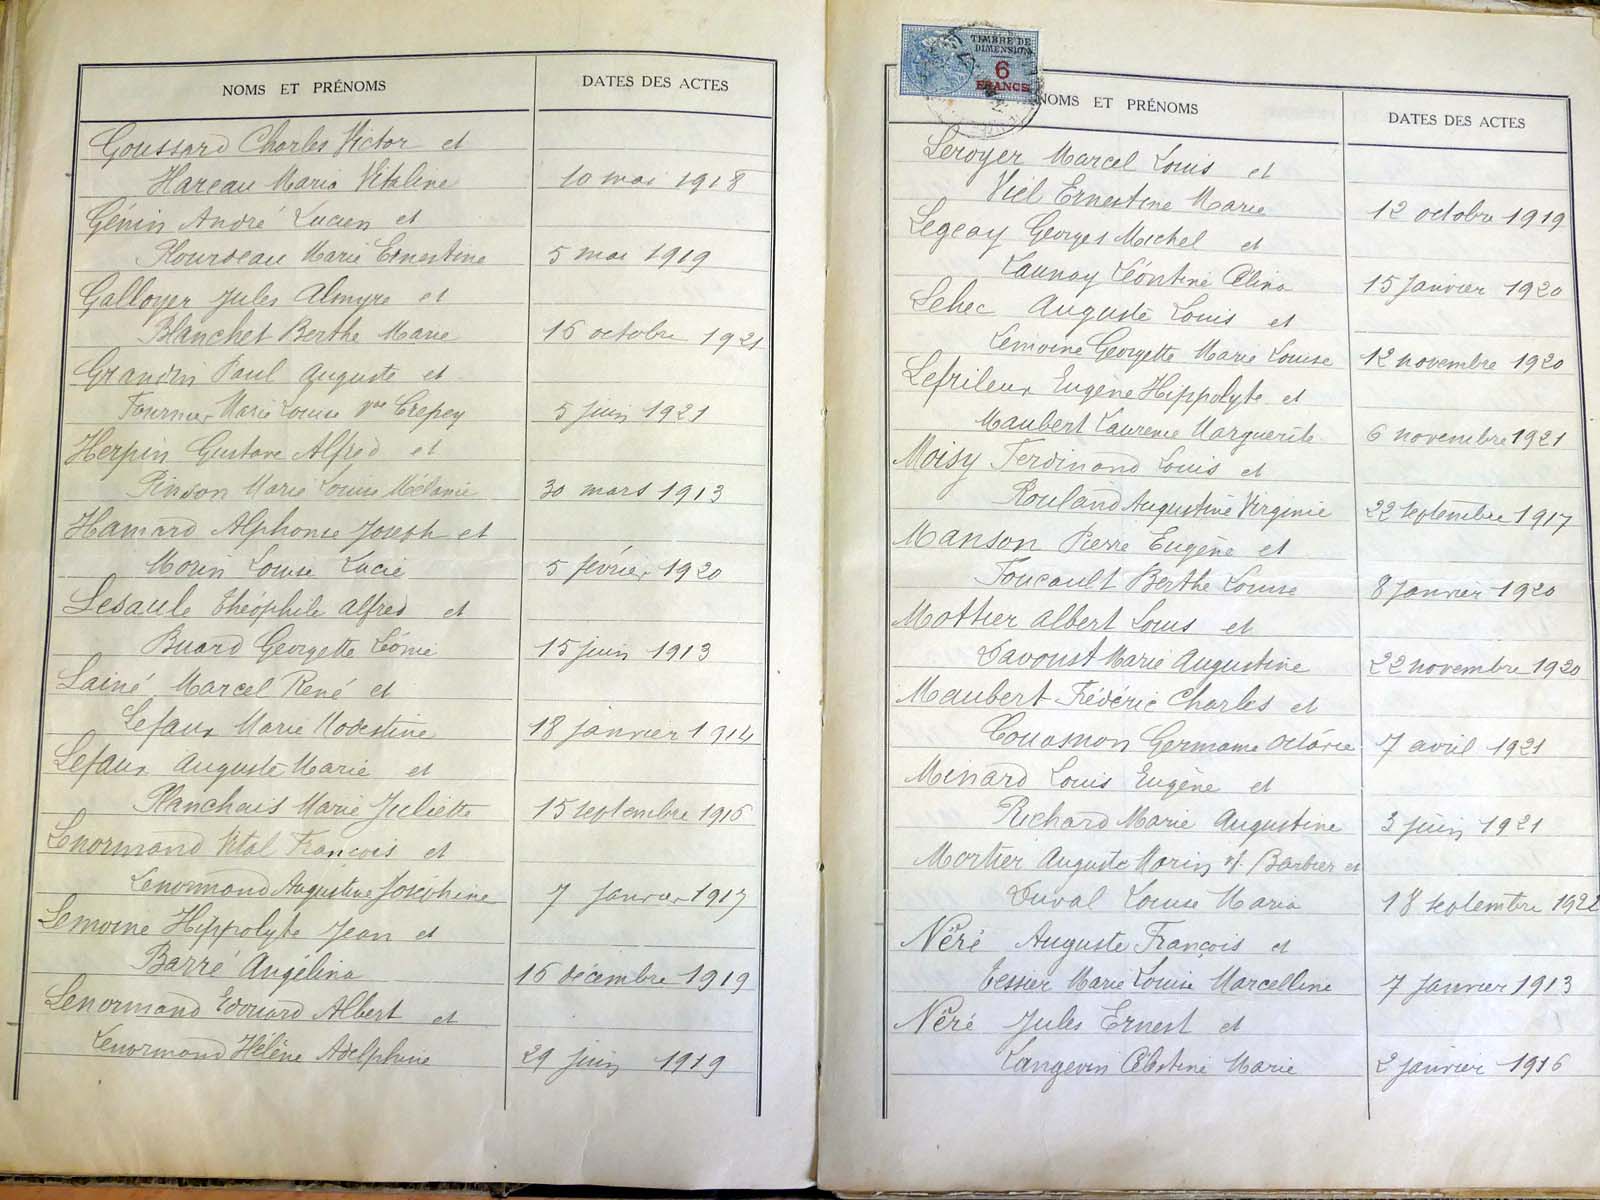 NOMS ET PRÉNOMS DATES DES ACTES
Goussard Charles Victor et
Hareau Maria Vitaline 10 mai 1918
Génin André Lucien et
Plourdeau Marie Ernestine 5 mai 1919
Galloyer Jules Almyre et
Blanchet Berthe Marie 16 octobre 1921
Grandin Paul Auguste et
Fournier Marie Louise Vve Crepey 5 juin 1921
Herpin Gustave Alfred et
Pinson Marie Louise Mélanie 30 mars 1913
Hamard Alphonse Joseph et
Morin Louise Lucie 5 février 1920
Lesaule Théophile Alfred et
Buard Georgette Léonie 15 juin 1913
Lainé Marcel René et
Lefaux Marie Modestine 18 janvier 1914
Lefaux Auguste Marie et
Planchais Marie Juliette 15 septembre 1916
Lenormand Vital François et
Lenormand Augustine Joséphine 7 janvier 1917
Lemoine Hippolyte Jean et
Barré Angélina 16 décembre 1919
Lenormand Edouard Albert et
Lenormand Hélène Adelphine 29 juin 1919
TIMBRE DE DIMENSION
6
FRANCS
NOMS ET PRÉNOMS DATES DES ACTES
Leroyer Marcel Louis et
Viel Ernestine Marie 12 octobre 1919
Legeay Georges Michel et
Launay Léontine Célina 15 janvier 1920
Lehec Auguste Louis et
Lemoine Georgette Marie Louise 12 novembre 1920
Lefrileux Eugène Hippolyte et
Maubert Laurence Marguerite 6 novembre 1921
Moisy Ferdinand Louis et
Rouland Augustine Virginie 22 septembre 1917
Manson Pierre Eugène et
Foucault Berthe Louise 8 janvier 1920
Mottier Albert Louis et
Davoust Marie Augustine 22 novembre 1920
Maubert Frédéric Charles et
Couasnon Germaine Octavie 7 avril 1921
Ménard Louis Eugène et
Richard Marie Augustine 3 juin 1921
Mortier Auguste Marin vf Barbier et
Duval Louise Maria 18 septembre 1922
Néré Auguste François et
Tessier Marie Louise Marcelline 7 janvier 1913
Néré Jules Ernest et
Langevin Célestine Marie 2 janvier 1916